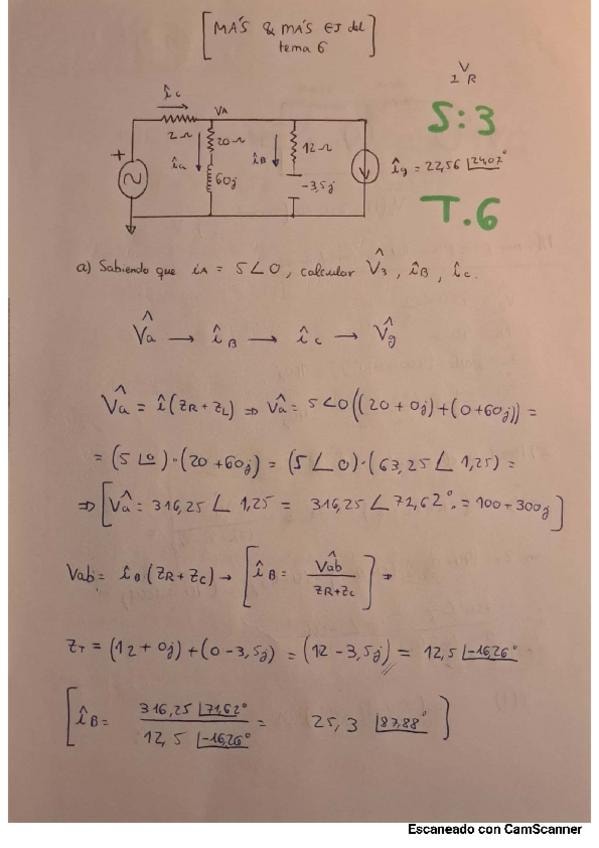 [MÁS & MÁS EJ del
tema 6]
V
I R
S:3
T.6
îc
VA
2Ω
20Ω
îa
îB
12Ω
60j
-3,5j
îg = 22,56 ∠24,07°
a) Sabiendo que iA = 5∠0, calcular V̂3, îB, îc.
V̂a → îB → îc → V̂g
V̂a = î(ZR + ZL) ⇒ V̂a = 5∠0((20 + 0j) + (0+60j)) =
= (5∠0)·(20+60j) = (5∠0)·(63,25∠1,25) =
⇒ [V̂a = 316,25∠1,25 = 316,25∠72,62° = 100+300j]
Vab = îB(ZR + Zc) → [îB = V̂ab / ZR+Zc] ⇒
ZT = (12 + 0j) + (0 - 3,5j) = (12 - 3,5j) = 12,5∠-16,26°
[îB = 316,25∠71,62° / 12,5∠-16,26° = 25,3∠87,88°]
Escaneado con CamScanner